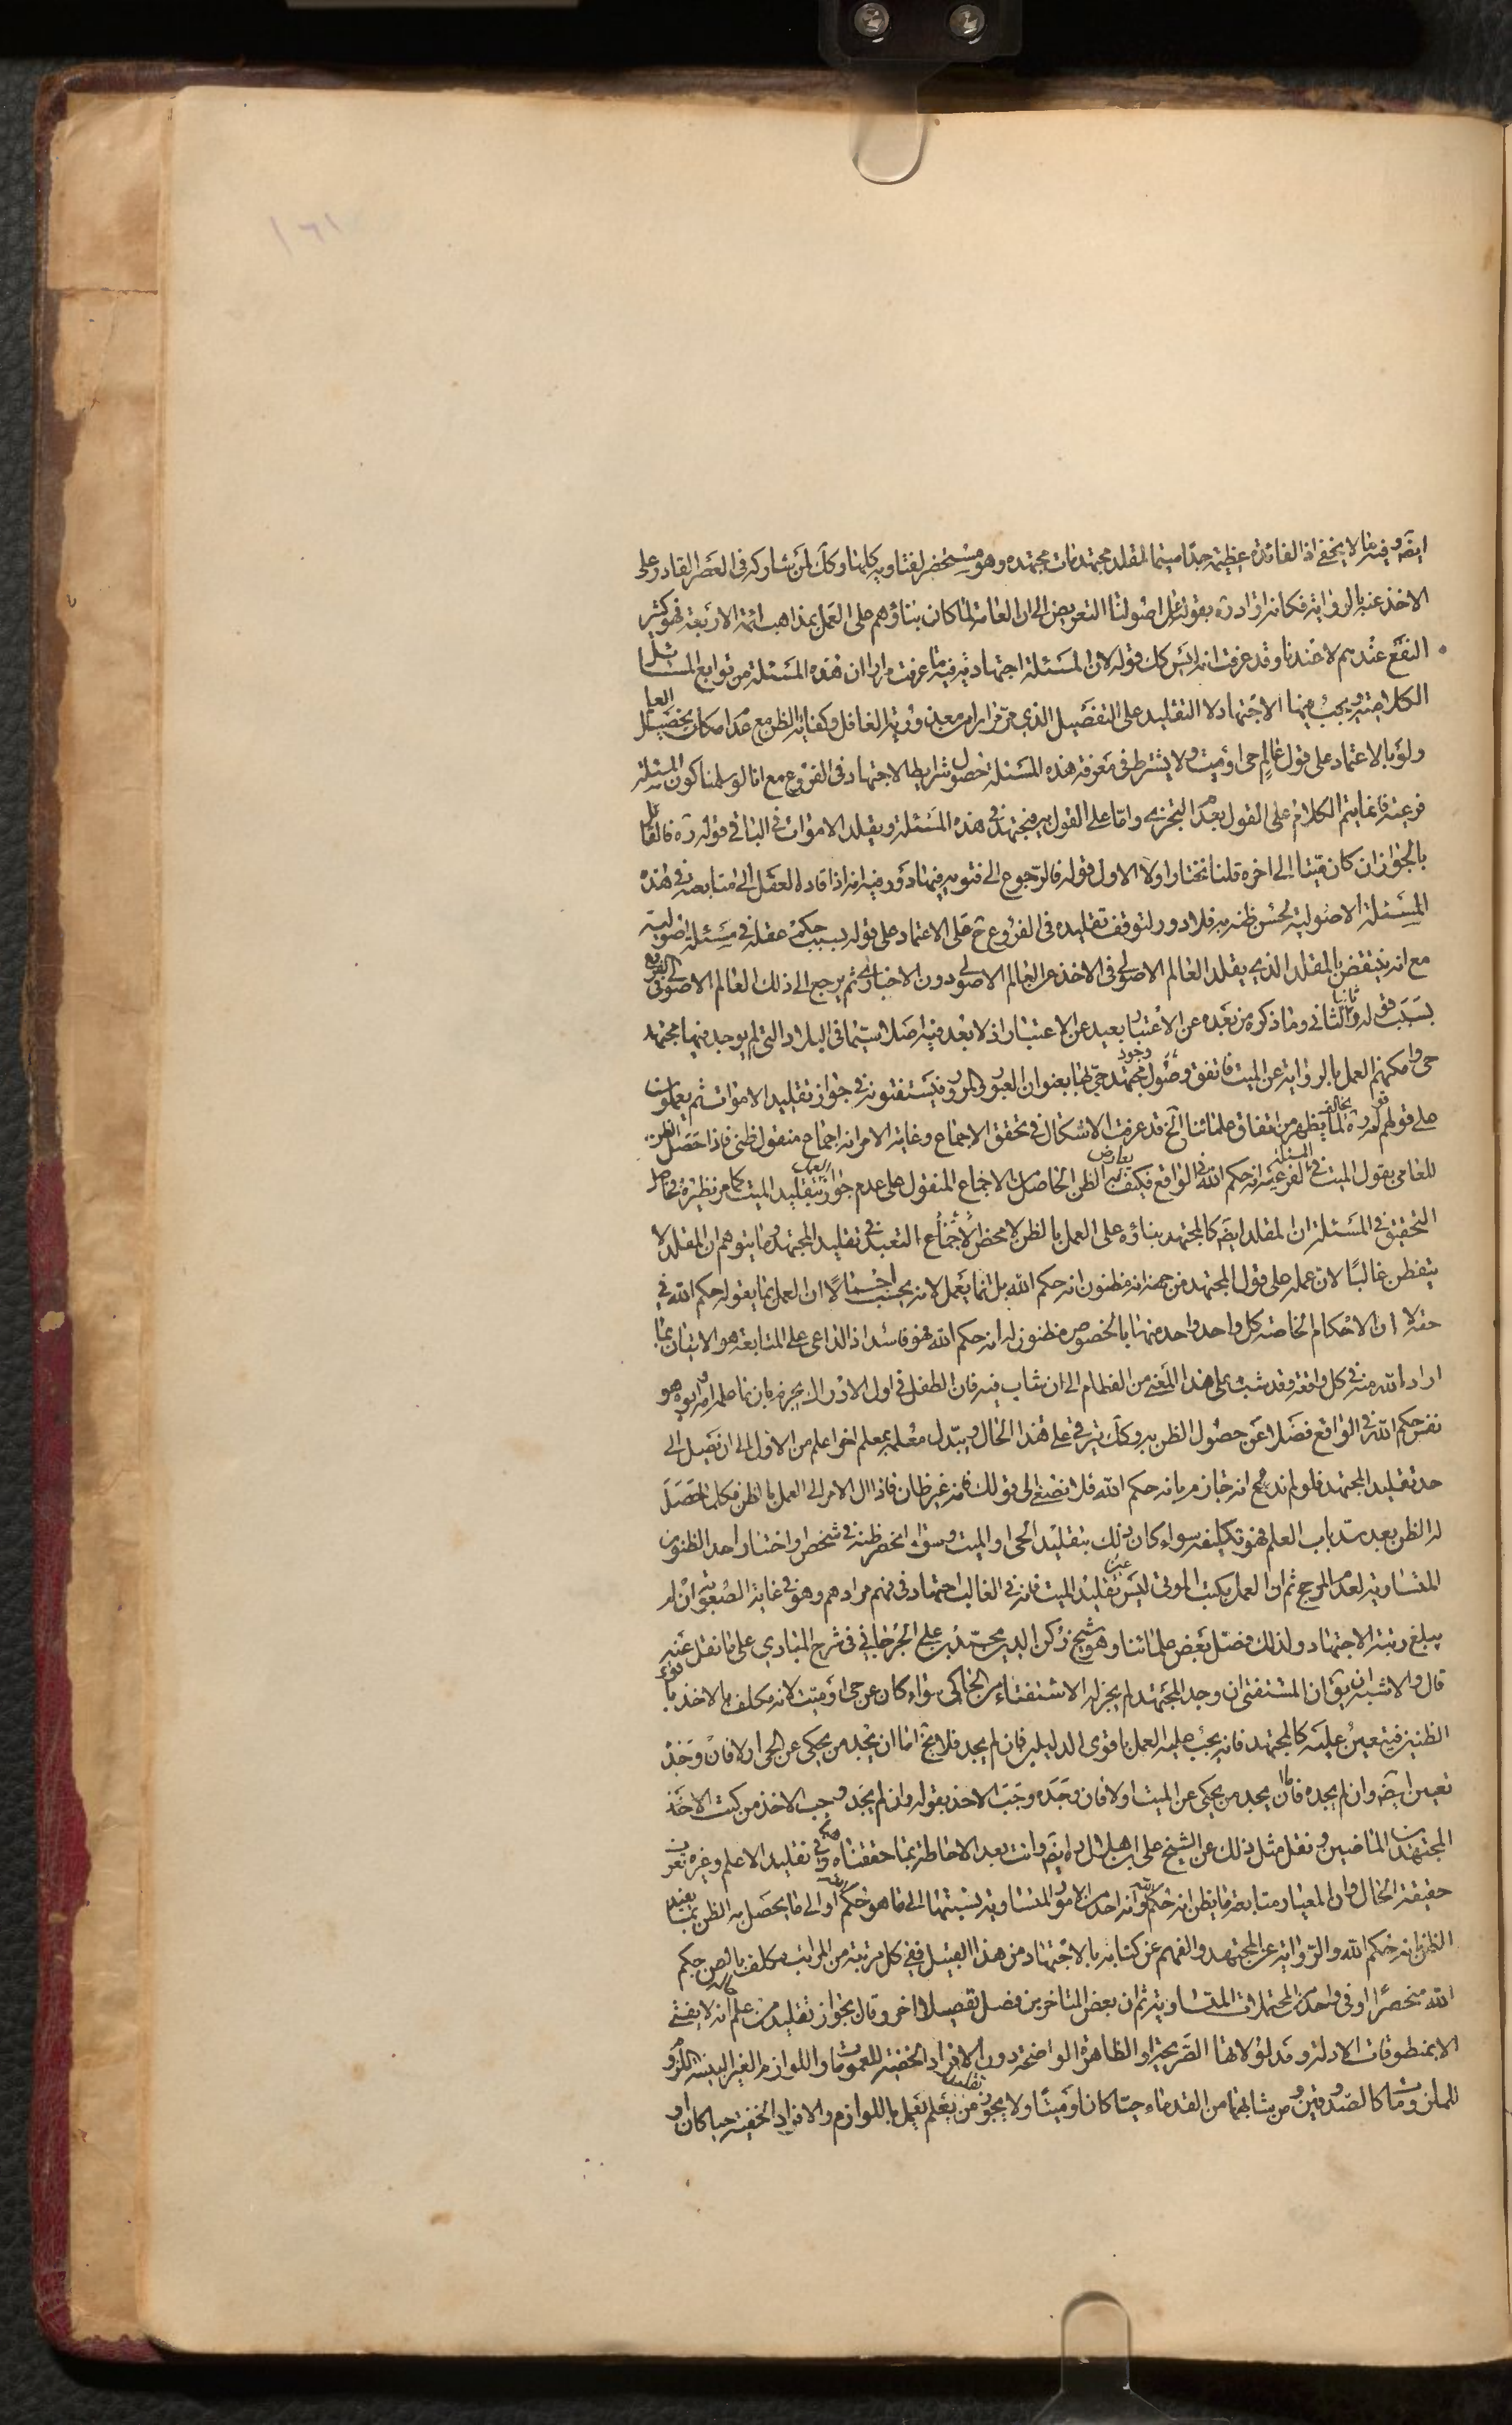 ١٦١
ايضا وفيه ما لا يخفى اذ الفائدة عظيمة جدا سيما لمقلد مجتهد مات مجتهده وهو مستحضر لفتاويه كلها وكك لمن يشاركه في العصر القادر على
الاخذ عنه بالرواية فكانه اراد ره بقوله على اصولنا التعريض الى ان العامة لما كان بناؤهم على العمل بمذاهب ائمة الاربعة فهو كثير
النفع عندهم لا عندنا وقد عرفت انه ليس كك قوله لان المسئلة اجتهادية فيه ما عرفت مرارا ان هذه المسئلة من توابع المسائل
الكلامية ويجب فيها الاجتهاد لا التقليد على التفصيل الذي مر مرارا من معذورية الغافل وكفاية الظن مع عدم امكان تحصيل العلم
ولو بالاعتماد على قول عالم حي او ميت ولا يشترط في معرفة هذه المسئلة حصول شرايط الاجتهاد في الفروع مع انا لو سلمنا كون المسئلة
فرعية فانما يتم الكلام على القول بعدم التجزي واما على القول به فيجتهد في هذه المسئلة ويقلد الاموات في الباقي قوله ره فالقائل
بالجواز ان كان ميتا الى اخره قلنا نختار اولا الاول قوله فالرجوع الى فتويه فيها دور فيه انه اذا قاده العقل الى متابعته في هذه
المسئلة الاصولية لحسن ظنه به فلا دور لتوقف تقليده في الفروع ح على الاعتماد على قوله بسبب حكم عقله في مسئلة اصولية
مع انه ينتقض بالمقلد الذي يقلد العالم الاصولي في الاخذ عن العالم الاصولي دون الاخباري ثم يرجع الى ذلك العالم الاصولي في الفروع
بسبب قوله وثانيا الثاني وما ذكره من بعده عن الاعتبار بعيد عن الاعتبار اذ لا بعد فيه اصلا سيما في البلاد التي لم يوجد فيها مجتهد
حي وامكنهم العمل بالرواية عن الميت فاتفق وصول وجود مجتهد حي لها بعنوان العبور والمرور فيستفتونه في جواز تقليد الاموات ثم يعملون
على قولهم قوله ره لما يخالف يظهر من اتفاق علمائنا الخ قد عرفت الاشكال في تحقق الاجماع وغاية الامر انه اجماع منقول ظني فاذا حصل الظن
للعامي بقول الميت في المسئلة الفرعية انه حكم الله في الواقع فكيف يعارض الظن الحاصل من الاجماع المنقول على عدم جواز العمل بتقليد الميت كما مر نظيره فحاصل
التحقيق في المسئلة ان المقلد ايضا كالمجتهد بناؤه على العمل بالظن لا محض الاجماع التعبد في تقليد المجتهد وما يتوهم ان المقلد لا
يتفطن غالبا لان عمله على قول المجتهد من جهة انه مظنون انه حكم الله بل انما يعمل لانه يحسب اجمالا ان العمل بما يقوله حكم الله في
حقه لا ان الاحكام الخاصة كل واحد واحد منها بالخصوص مظنون له انه حكم الله فهو فاسد اذ الداعي على المتابعة هو الاتيان بما
اراد الله منه في كل واقعة وقد شب على هذا المعنى من الفطام الى ان شاب فيه فان الطفل في اول الادراك يجزم بان ما علمه امه وابوه هو
نفس حكم الله في الواقع فضلا عن حصول الظن به وكك يترقى على هذا الحال ويبدل معلمه بمعلم اخر اعلم من الاول الى ان يصل الى
حد تقليد المجتهد فلو لم ندع انه جازم بانه حكم الله فلا نصغي الى قولك انه غير ظان فاذا ال الامر الى العمل بالظن فكلما حصل
له الظن بعد سد باب العلم فهو تكليفه سواء كان ذلك بتقليد الحي او الميت وسواء انحصر ظنه في شخص او اختار احد الظنون
المتساوية لعدم المرجح ثم ان العمل بكتب الموتى ليس عين تقليد الميت فانه في الغالب اجتهاد في فهم مرادهم وهو في غاية الصعوبة ان لم
يبلغ رتبة الاجتهاد ولذلك فصل بعض علمائنا وهو شيخ ركن الدين محمد بن علي الجرجاني في شرح المبادي على ما نقل عنه
قال والاشبه ان يق ان المستفتي ان وجد المجتهد لم يجز له الاستفتاء من الحاكي سواء كان عن حي او ميت لانه مكلف بالاخذ باقوى
الظنين فيتعين عليه كالمجتهد فانه يجب عليه العمل باقوى الدليلين فان لم يجد فلا يخ اما ان يجد من يحكي عن الحي او لا فان وجد
تعين ايضا وان لم يجده فاما ان يجد من يحكي عن الميت او لا فان وجده وجب الاخذ بقوله وان لم يجد وجب الاخذ من كتب
المجتهدين الماضيين ونقل مثل ذلك عن الشيخ علي ابن هلال ره ايضا وانت بعد الاحاطة بما حققناه هنا وفي تقليد الاعلم وغيره تعرف
حقيقة الحال وان المعيار متابعة ما يظن انه حكم الله وانه احد الامور المتساوية نسبتها الى ما هو حكم الله او الى ما يحصل به الظن بما يفيد
الظن انه حكم الله والرواية عن المجتهد والفهم عن كتابه بالاجتهاد من هذا القبيل ففي كل مرتبة من المراتب مكلف بما يظن حكم
الله منحصرا او في واحد من المحتملات المتساوية ثم ان بعض المتاخرين فصل تفصيلا اخر وقال بجواز تقليد من علم من حاله انه لا يفتي
الا بمنطوقات الادلة ومدلولاتها الصريحة او الظاهرة الواضحة دون الافراد الخفية للعمومات واللوازم الغير البينة اللزوم
للملزومات كالصدوقين ومن شابههما من القدماء حيا كان او ميتا ولا يجوز تقليد من يعلم يعمل باللوازم والافراد الخفية حيا كان او